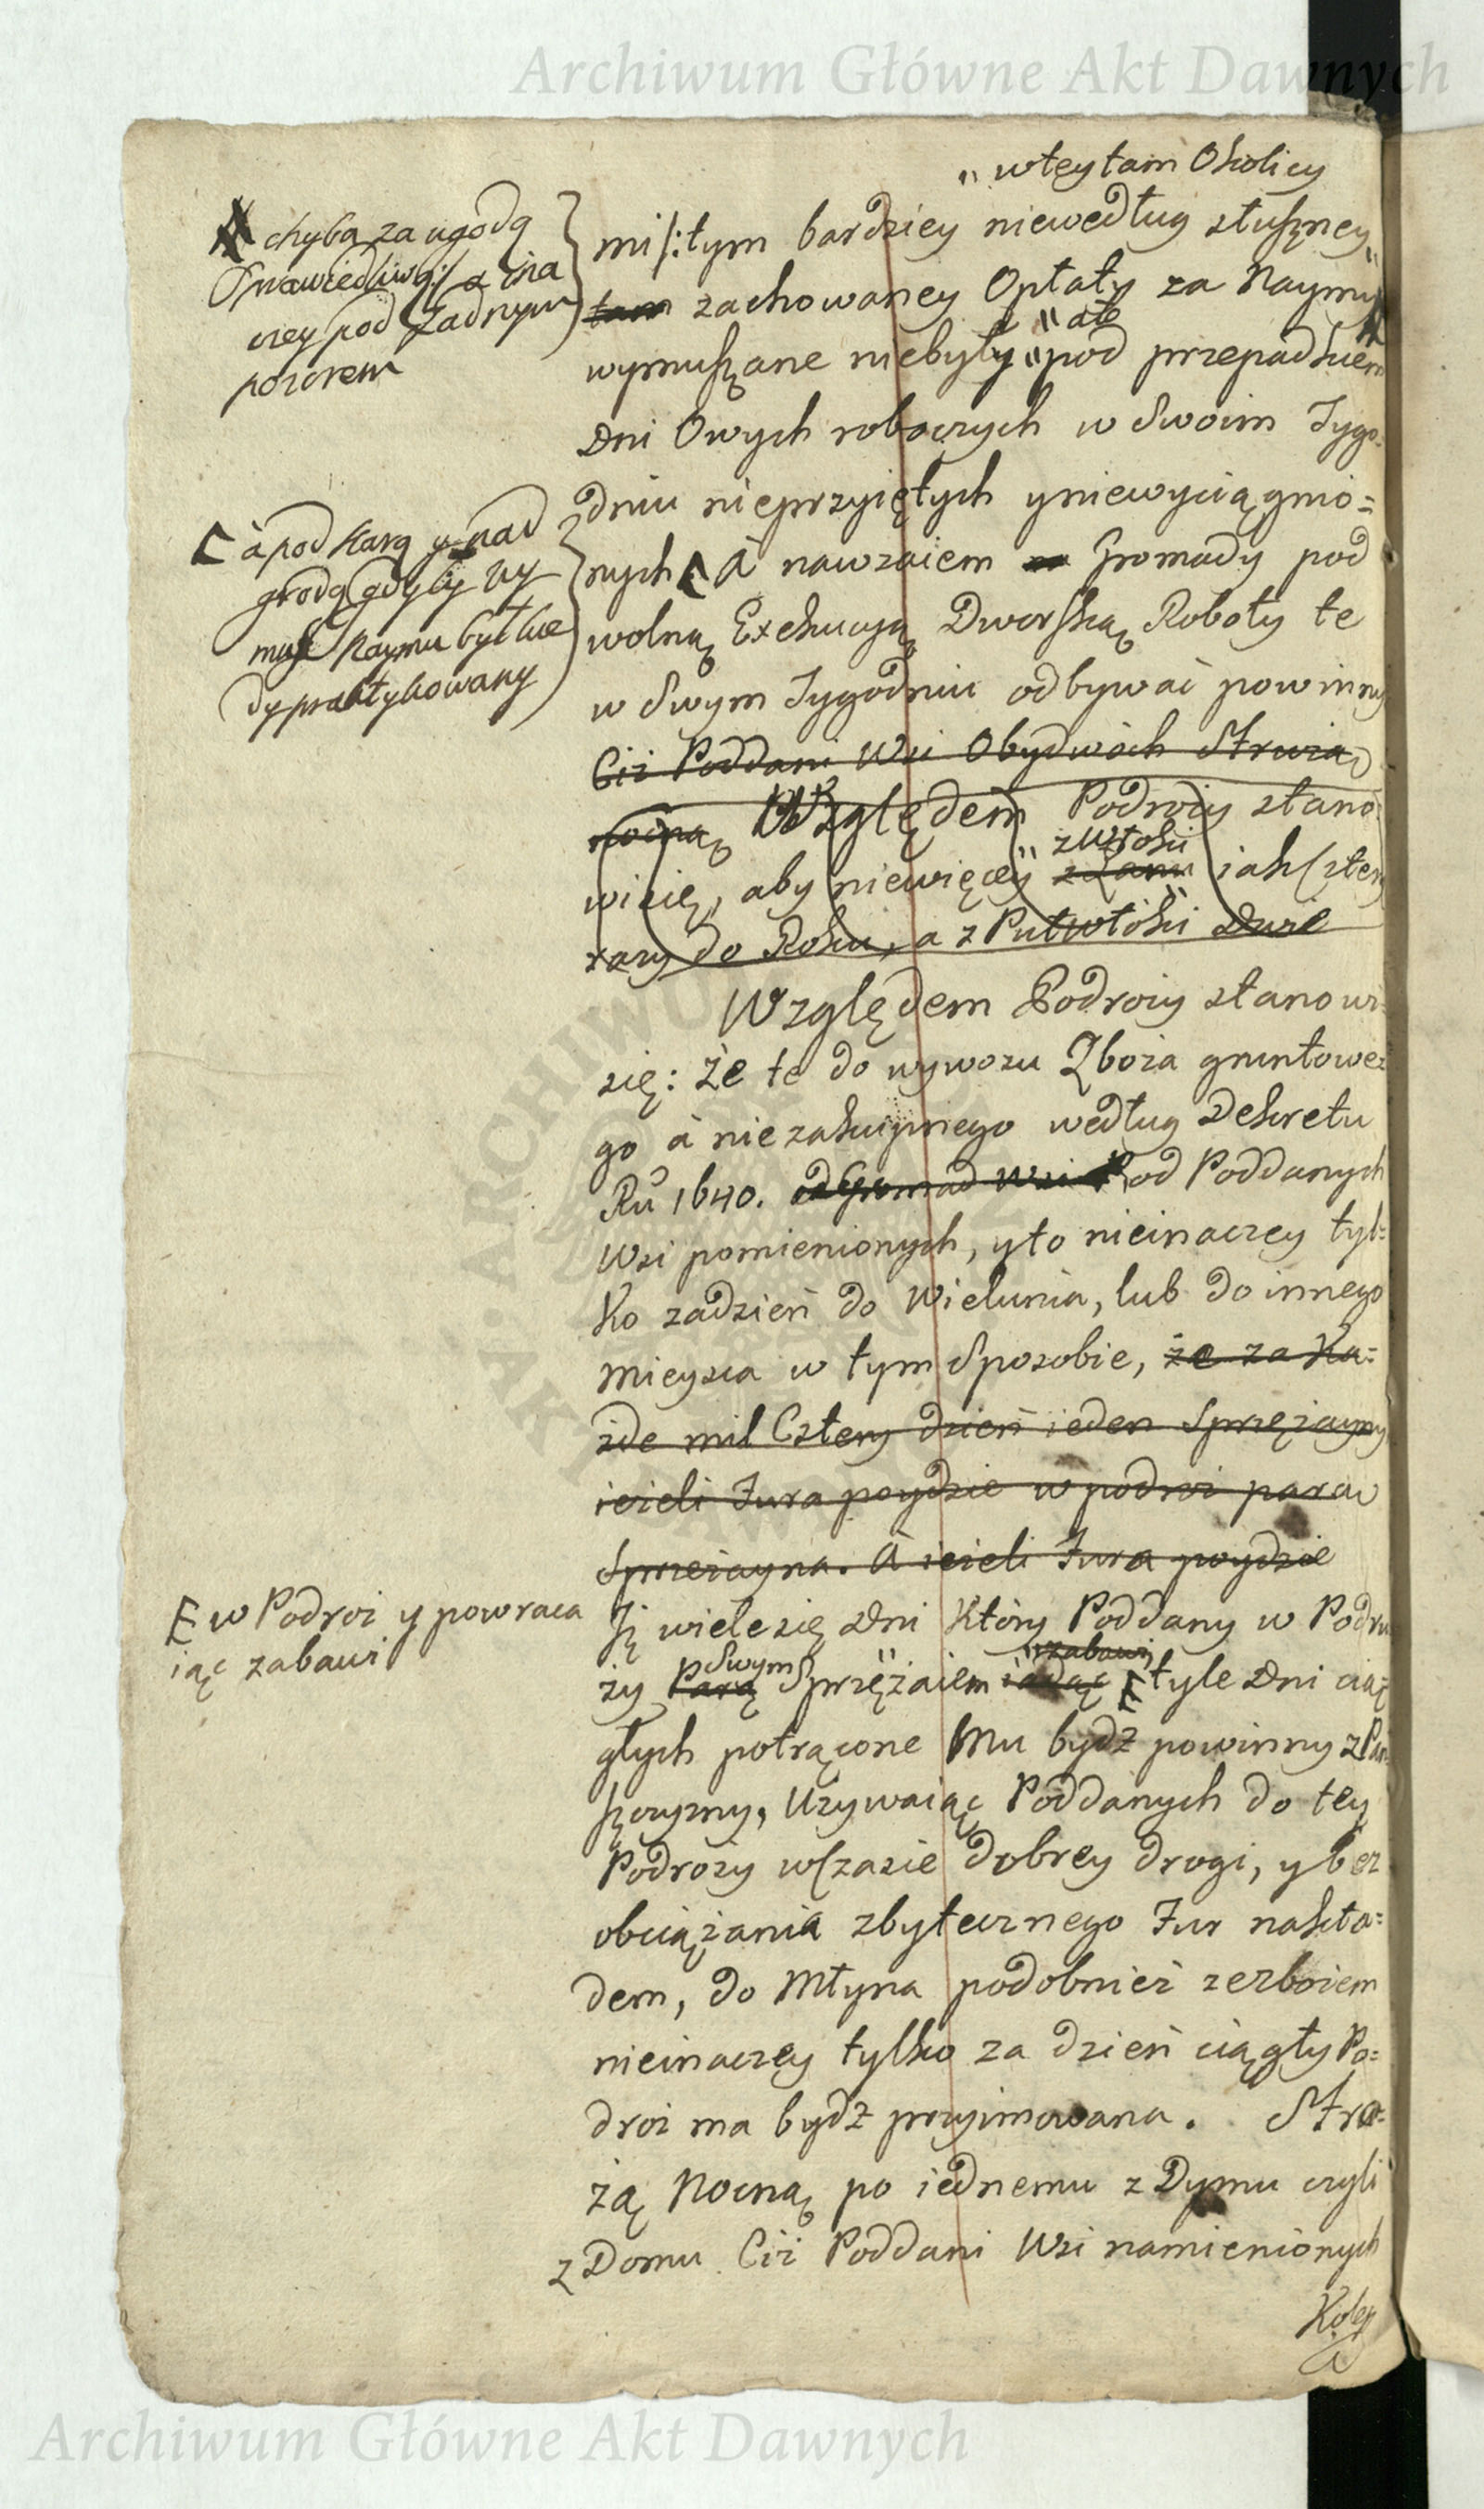 Archiwum Główne Akt Dawnych
" wteytam Okolicy
chyba za ugodą
Sprawiedliwą :/ a ina
czey pod Żadnym
pozorem
mi/: tym bardziey niewedług słuszney "
tam zachowaney Opłaty za Naymy
" ale
wymuszane niebyły " pod przepadkiem
Dni Owych roboczych w Swoim Tygo-
dniu nieprzyiętych yniewyciągnio=
à pod Karą y nad
grodą gdyby wy
mus Naymu był kie
dy praktykowany
nych À nawzaiem Gromady pod
wolną Exekucyą Dworską Roboty te
w Swym Tygodniu odbywać powinny
Ciż Poddani Wsi Obydwóch Strużą
nocną Względem Podroży stano-
z Włoki
wisię, aby niewięcey " z Łanu iak Cztery
razy do Roku, a z Pułwłóki Dwie
Względem Podroży stanowi
się: Że te do wywozu Zboża gruntowe=
go à nie zakupnego według Dekretu
Rū 1640. od Gromad Wsi od Poddanych
Wsi pomienionych, yto nieinaczey tyl=
ko zadzień do Wielunia, lub do innego
mieysca w tym Sposobie, że za Ka=
żde mil Cztery dzień ieden Sprzężayny
ieżeli Fura poydzie w podroż parą
Sprzeżayna. À ieżeli Fura poydzie
w Podroż y powraca
iąc zabawi
Ją wiele się Dni Który Poddany w Podru
Swym " " zabawi
ży Parą Sprzężaiem iadąc tyle Dni cią
głych potrącone Mu bydź powinny z Pań
szczyzny, Używaiąc Poddanych do tey
Podroży wCzasie dobrey drogi, y bez
obciążania zbytecznego Fur nakła=
dem, do Młyna podobnież zezboiem
nieinaczey tylko za dzień ciągły Po=
droż ma bydź przyimowana. Stra=
żą Nocną po iednemu z Dymu czyli
z Domu Ciż Poddani Wsi namienionych
Koley
Archiwum Główne Akt Dawnych